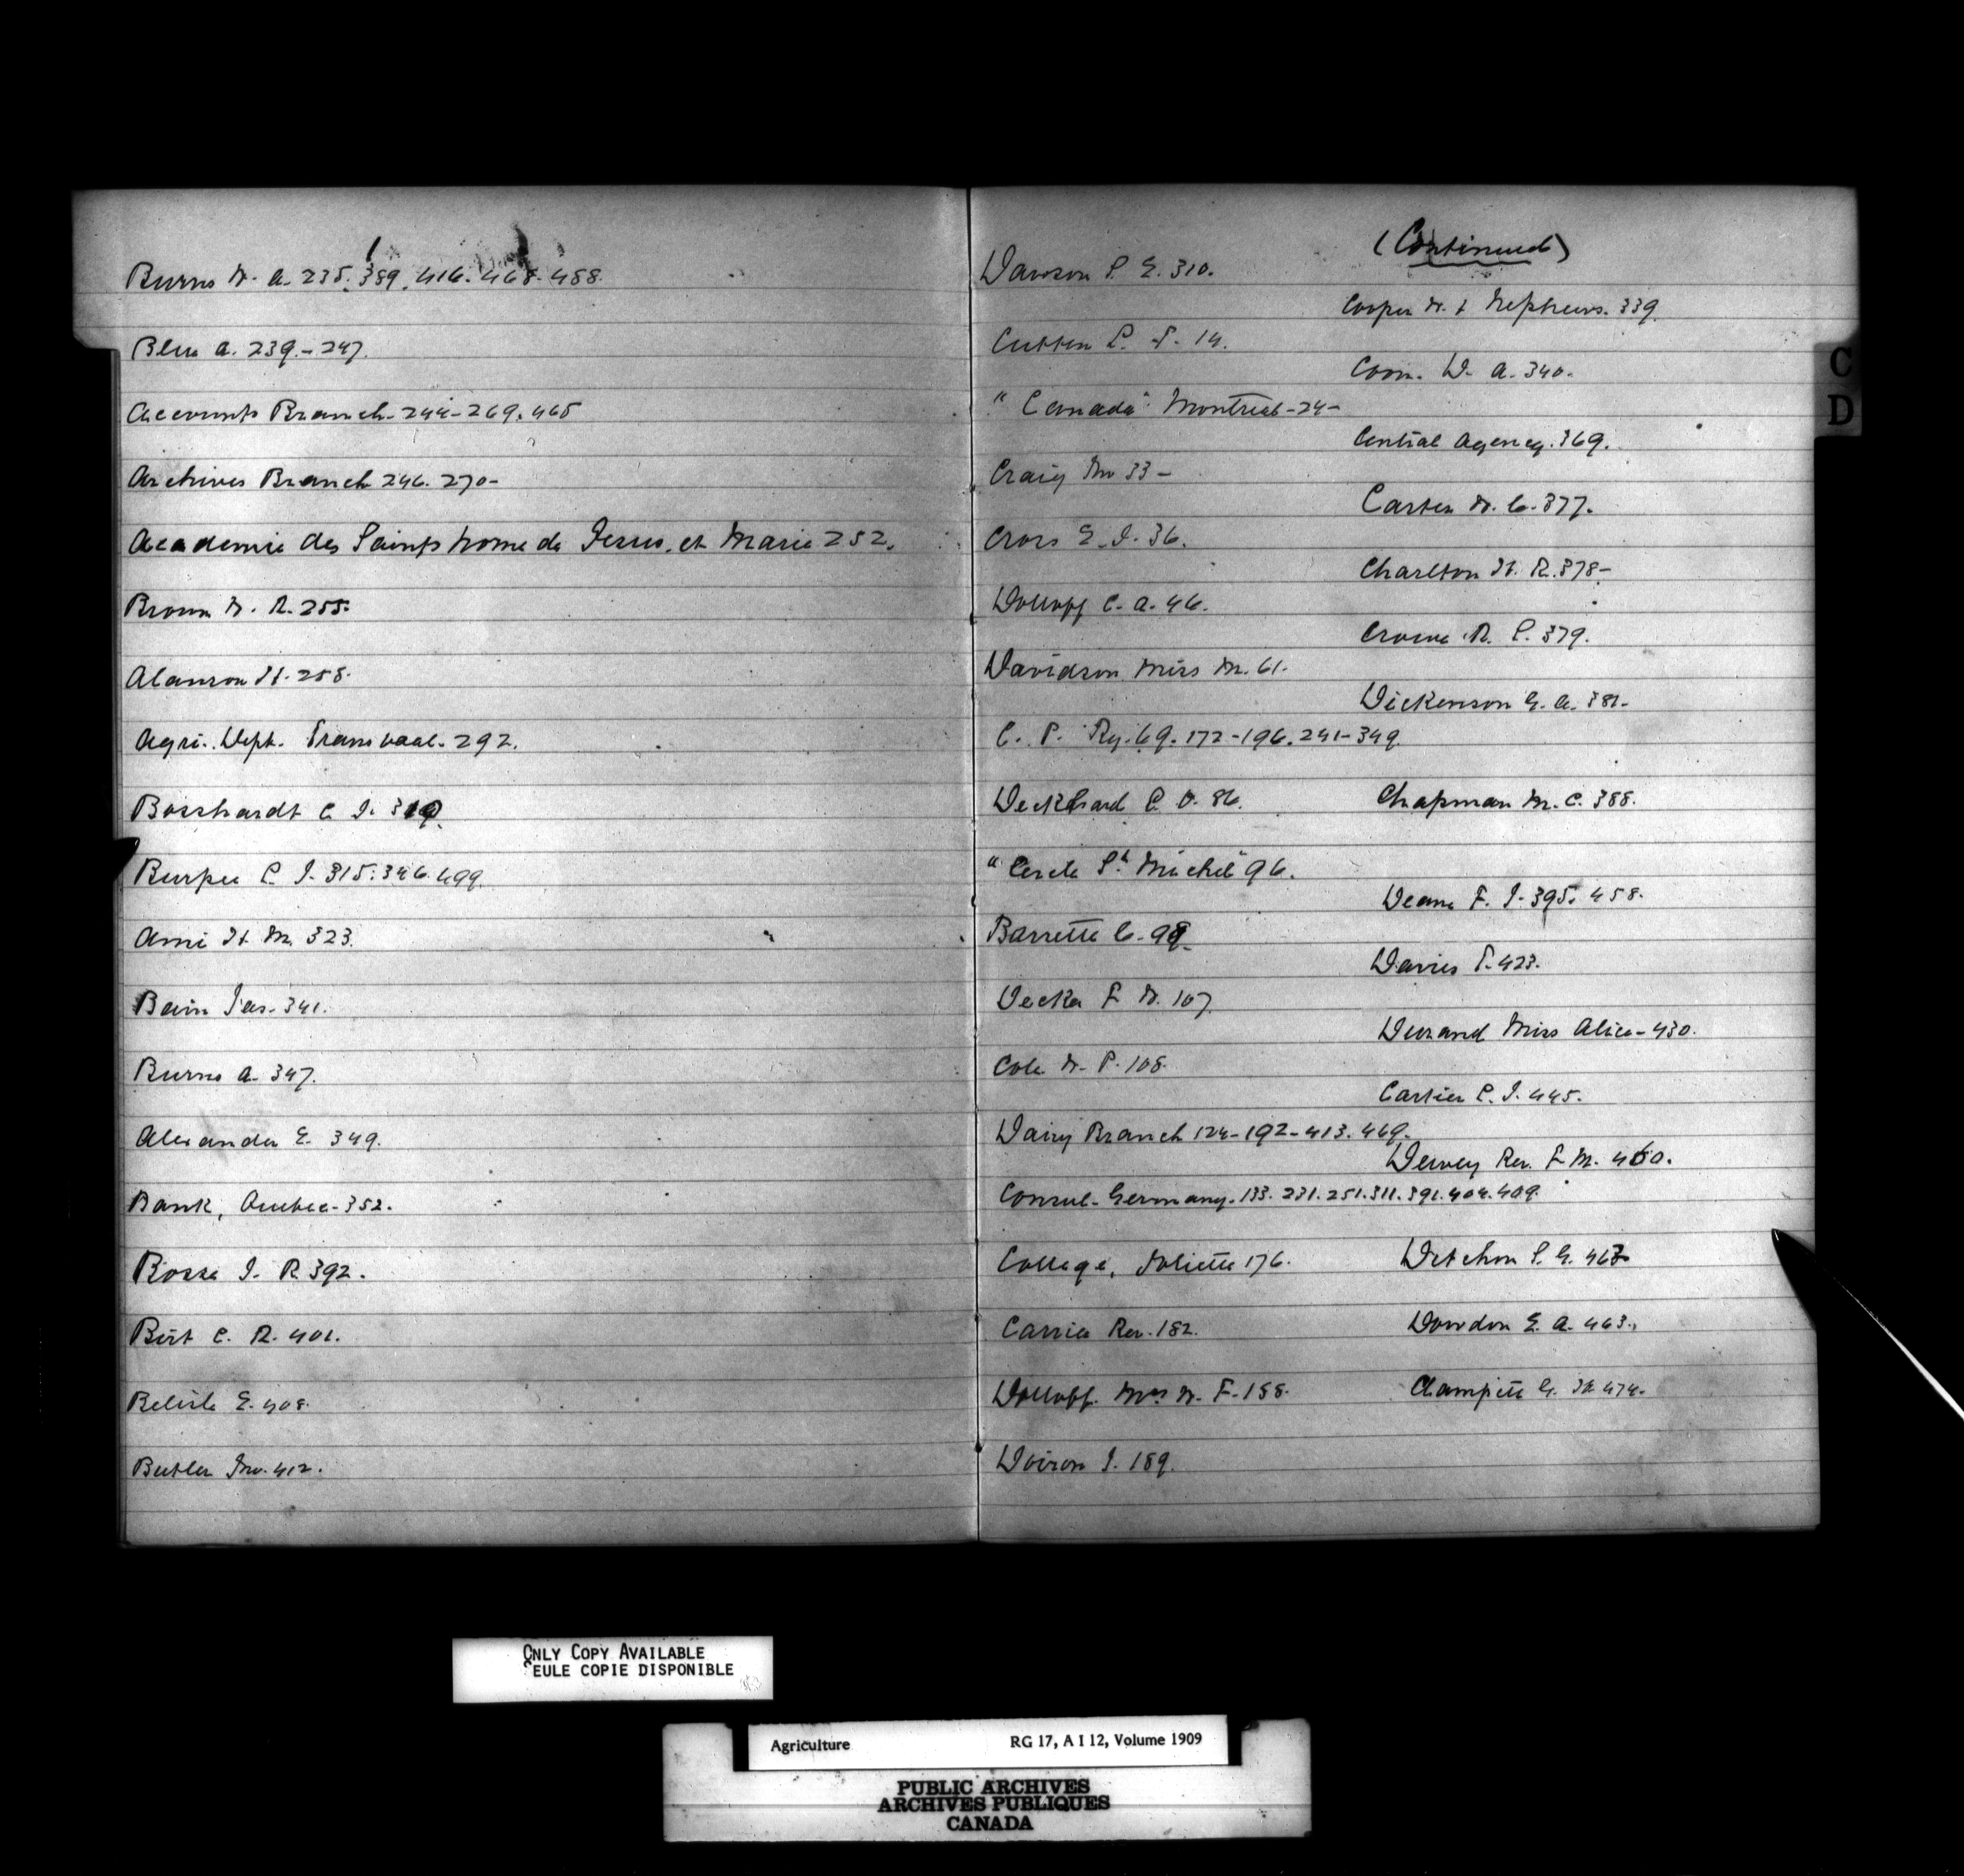 Burns W. A. 235. 389. 416. 468. 488.
Blue A. 239. - 247.
Accounts Branch - 244 - 269. 465
Archives Branch 246. 270 -
Academie des Saints nome de Jesus, et Marie 252.
Brown W. R. 255.
Alanson H. 258.
Agri. Dept. Transvaal - 292.
Bosshardt C. J. 319.
Burpee L. J. 315. 346. 499.
Ami H. M. 323.
Bain Jas. 341.
Burns A. 347.
Alexander E. 349.
Bank, Quebec - 352.
Bosse J. R. 392.
Birt C. R. 401.
Belisle E. 408.
Butler Jno. 412.
(Continued)
Dawson S. E. 310.
Cutten L. S. 14.
"Canada" Montreal - 24 -
Craig Mr 33 -
Cross E. J. 36.
Dolloff C. A. 46.
Davidson Miss M. 61.
C. P. Ry. 69. 172 - 196. 241 - 349.
Deckhard C. O. 86.
"Cercle St. Michel" 96.
Barrette C. 98.
Decker F. W. 107.
Cole W. P. 108.
Dairy Branch 124 - 192 - 413. 469.
Consul - Germany - 133. 231. 251. 311. 391. 404. 409.
College, Joliette 176.
Carrie Rev. 182.
Dolloff Mrs. W. F. 188.
Doiron J. 189.
Cooper W. & Nephews. 339.
Coon. D. A. 340.
Central Agency. 369.
Carter W. C. 377.
Charlton H. R. 378 -
Crowe R. S. 379.
Dickenson G. A. 381.
Chapman M. C. 388.
Deane F. J. 395. 458.
Davies T. 423.
Durand Miss Alice - 430.
Cartier L. J. 445.
Dewey Rev. F. M. 460.
Detchon S. G. 463
Dowdon E. A. 463.
Champett G. H. 474.
C
D
ONLY COPY AVAILABLE
SEULE COPIE DISPONIBLE
Agriculture RG 17, A I 12, Volume 1909
PUBLIC ARCHIVES
ARCHIVES PUBLIQUES
CANADA